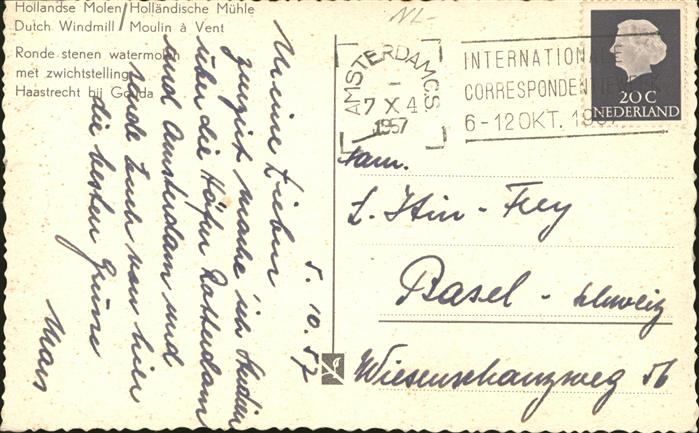 Hollandse Molen / Holländische Mühle
Dutch Windmill / Moulin à Vent
Ronde stenen watermolen
met zwichtstelling
Haastrecht bij Gouda
NL-
AMSTERDAM C.S.
7 X 4
1957
INTERNATIONALE
CORRESPONDENTIEWEEK
6-12 OKT. 1957
20 C
NEDERLAND
5.10.57
Meine Lieben
zurzeit mache ich Studien
über die Häfen Rotterdam
und Amsterdam und
sende Euch von hier
die besten Grüsse
Fam.
Basel - Schweiz
Wiesenschanzweg 56